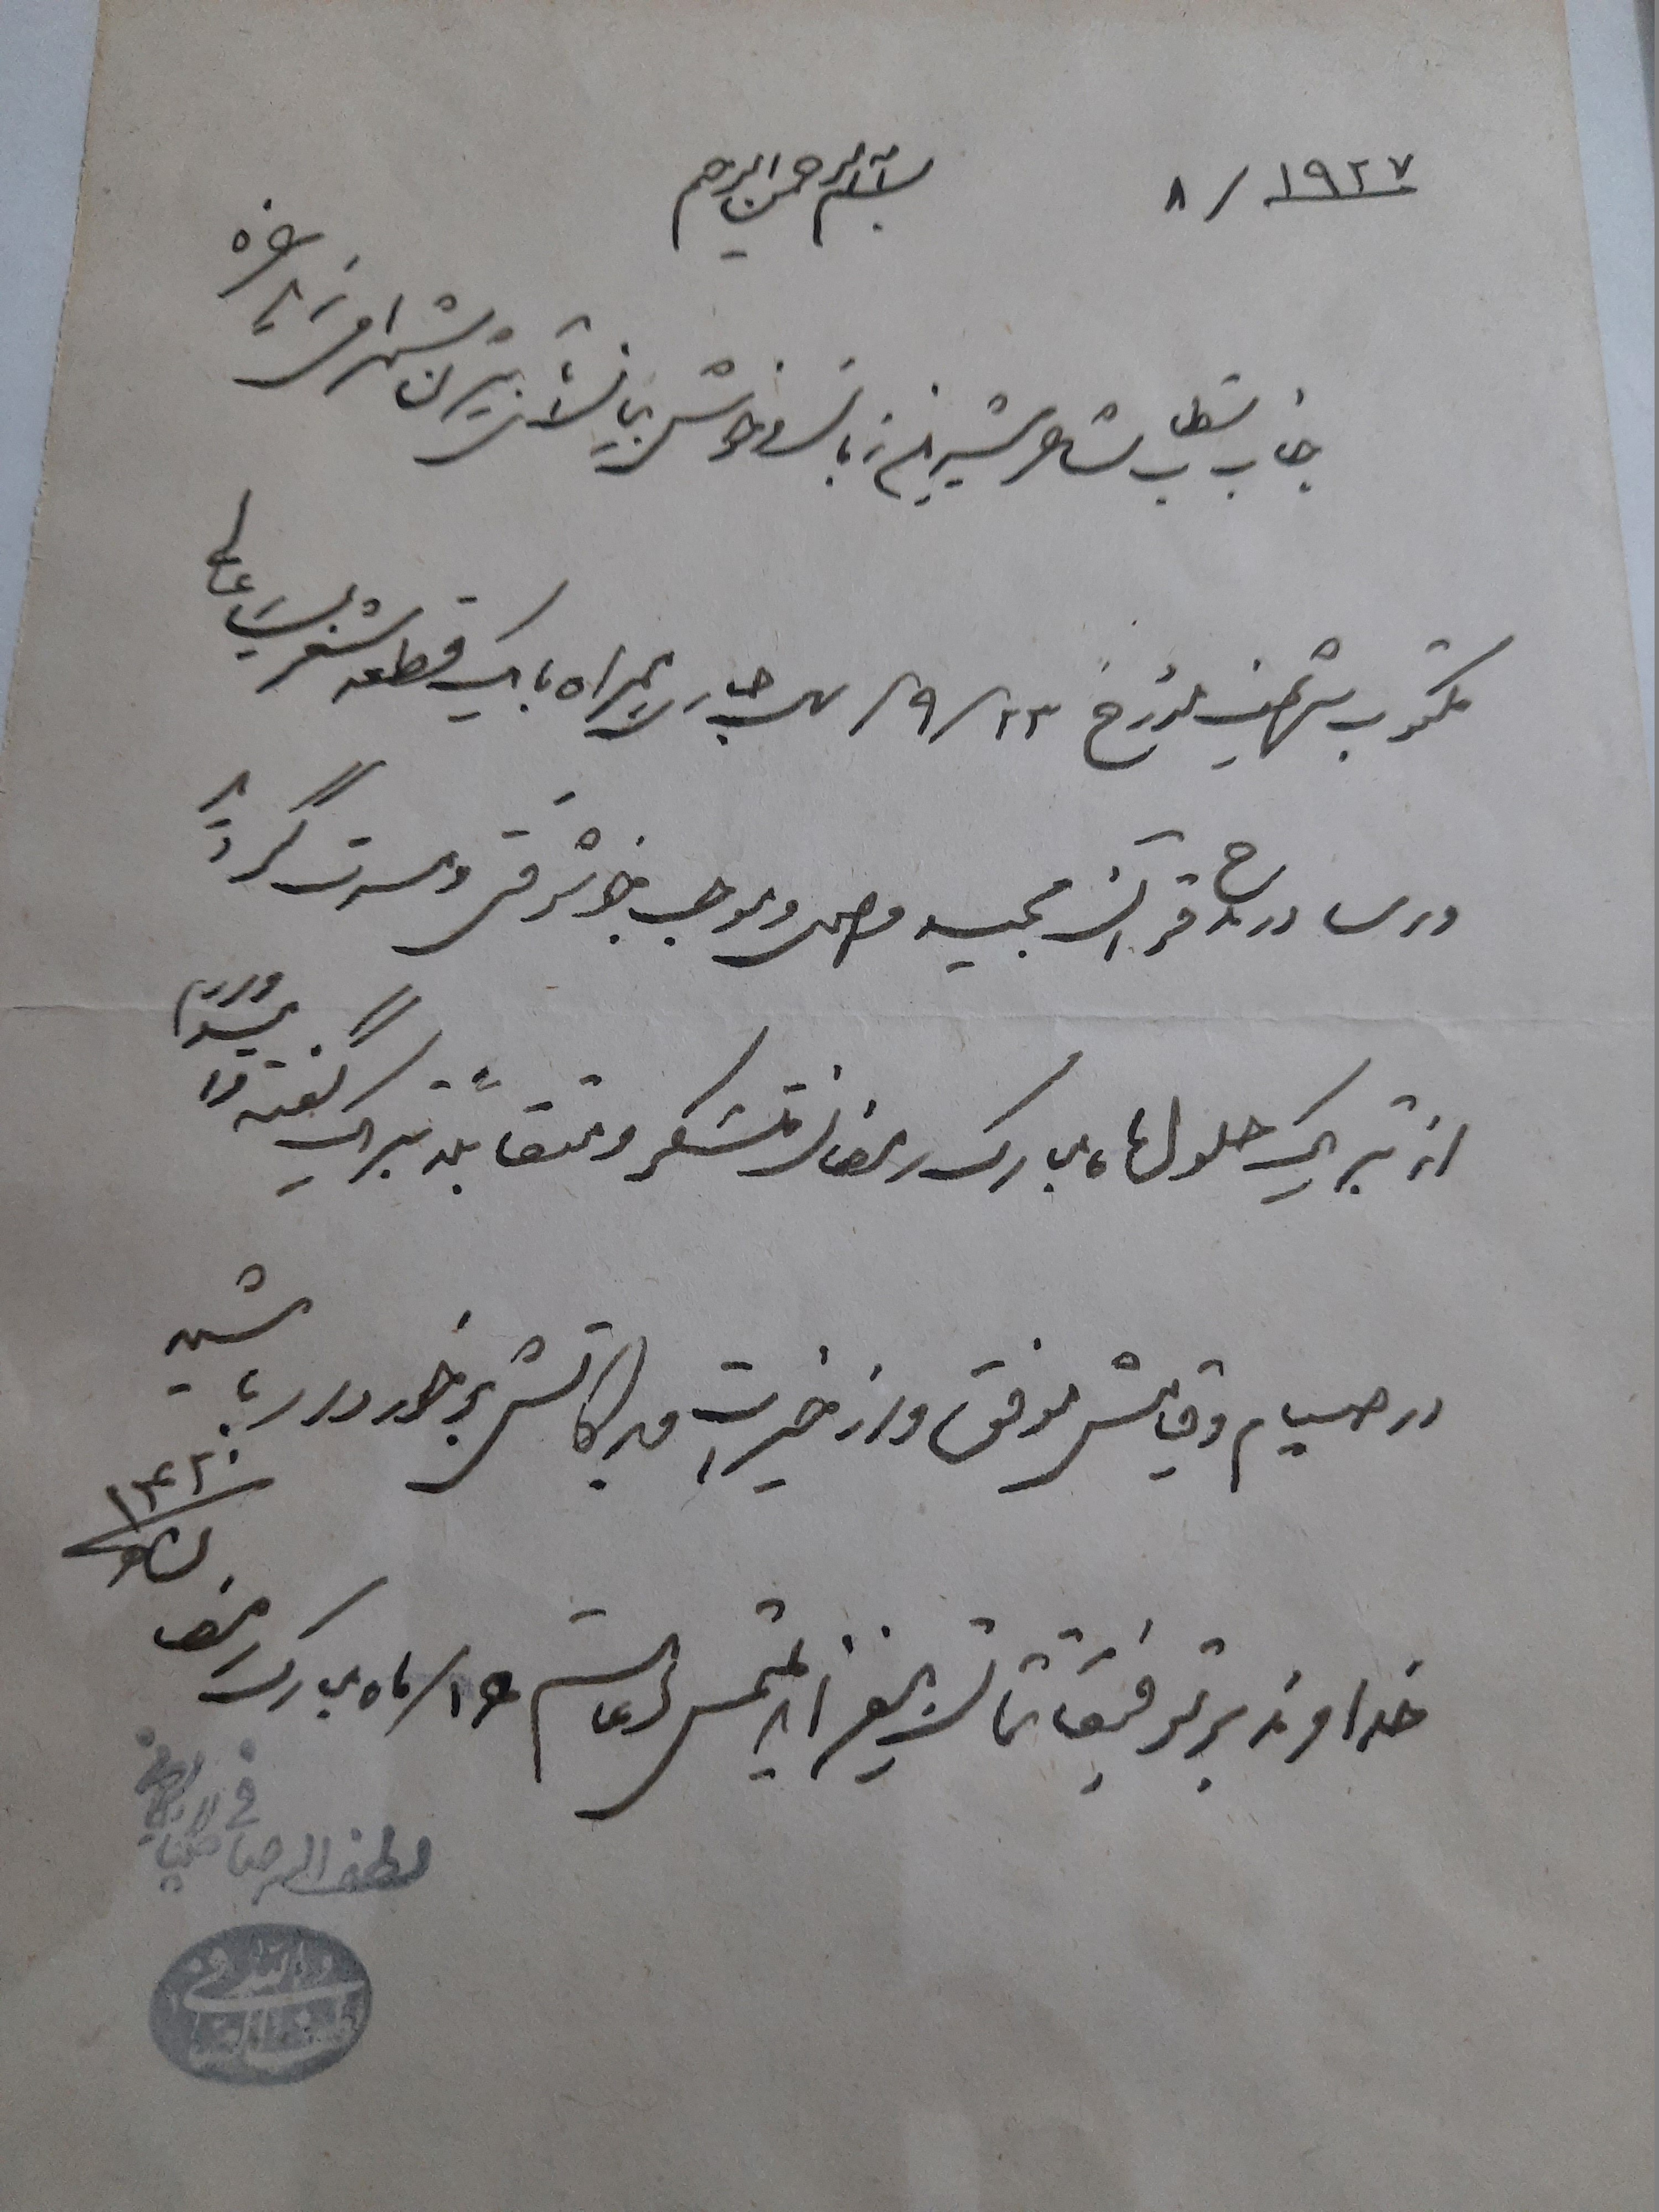 ۱۹۲۷ / ۸
بسم الله الرحمن الرحیم
جناب مستطاب شاعر شیرین زبان و خوش بیان آقای
مکتوب شریف مورخ ۲۳/۹/ همراه با یک قطعه شعر بسیار عالی
و رسا در مدح قرآن مجید واصل و موجب خوشوقتی و مسرت گردید
از تبریک حلول ماه مبارک رمضان متشکر و متقابلاً تبریک گفته امیدوارم
در صیام و قیامش موفق و از خیرات و برکاتش برخوردار باشید
خداوند بر توفیقاتتان بیفزاید ملتمس دعا هستم ۱۶/ ماه مبارک رمضان
۱۴۲۰
لطف الله صافی گلپایگانی